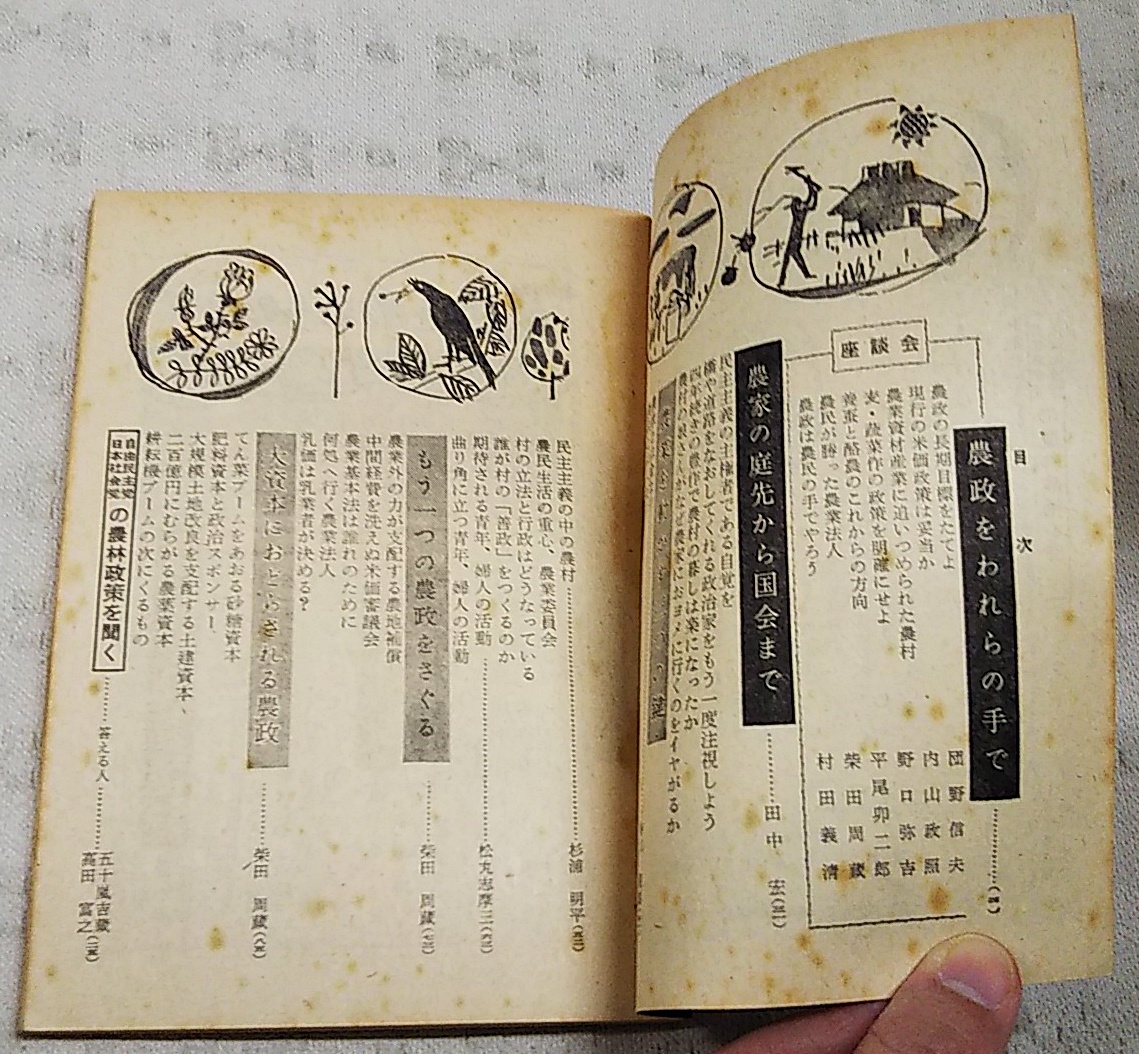 目次
農政をわれらの手で
座談会
農政の長期目標をたてよ
現行の米価政策は妥当か
農業資材産業に追いつめられた農村
麦・蔬菜作の政策を明確にせよ
養蚕と酪農のこれからの方向
農民が勝った農業法人
農政は農民の手でやろう
団野信夫
内山政照
野口弥吉
平尾卯二郎
柴田周蔵
村田義清
農家の庭先から国会まで
田中宏
民主主義の主権者である自覚を
橋や道路をなおしてくれる政治家をもう一度注視しよう
四年続きの豊作で農村の暮しは楽になったか
農村の娘さんがなぜ農家におヨメに行くのをイヤがるか
民主主義の中の農村
杉浦明平
農民生活の重心、農業委員会
村の立法と行政はどうなっている
誰が村の「善政」をつくるのか
期待される青年、婦人の活動
松丸志摩三
曲り角に立つ青年、婦人の活動
もう一つの農政をさぐる
柴田周蔵
農業外の力が支配する農地補償
中間経費を洗えぬ米価審議会
農業基本法は誰れのために
何処へ行く農業法人
乳価は乳業者が決める?
大資本におどらされる農政
柴田周蔵
てん菜ブームをあおる砂糖資本
肥料資本と政治スポンサー
大規模土地改良を支配する土建資本
二百億円にむらがる農薬資本
耕耘機ブームの次にくるもの
自由民主党
日本社会党
の農林政策を聞く
答える人
五十嵐吉蔵
高田富之